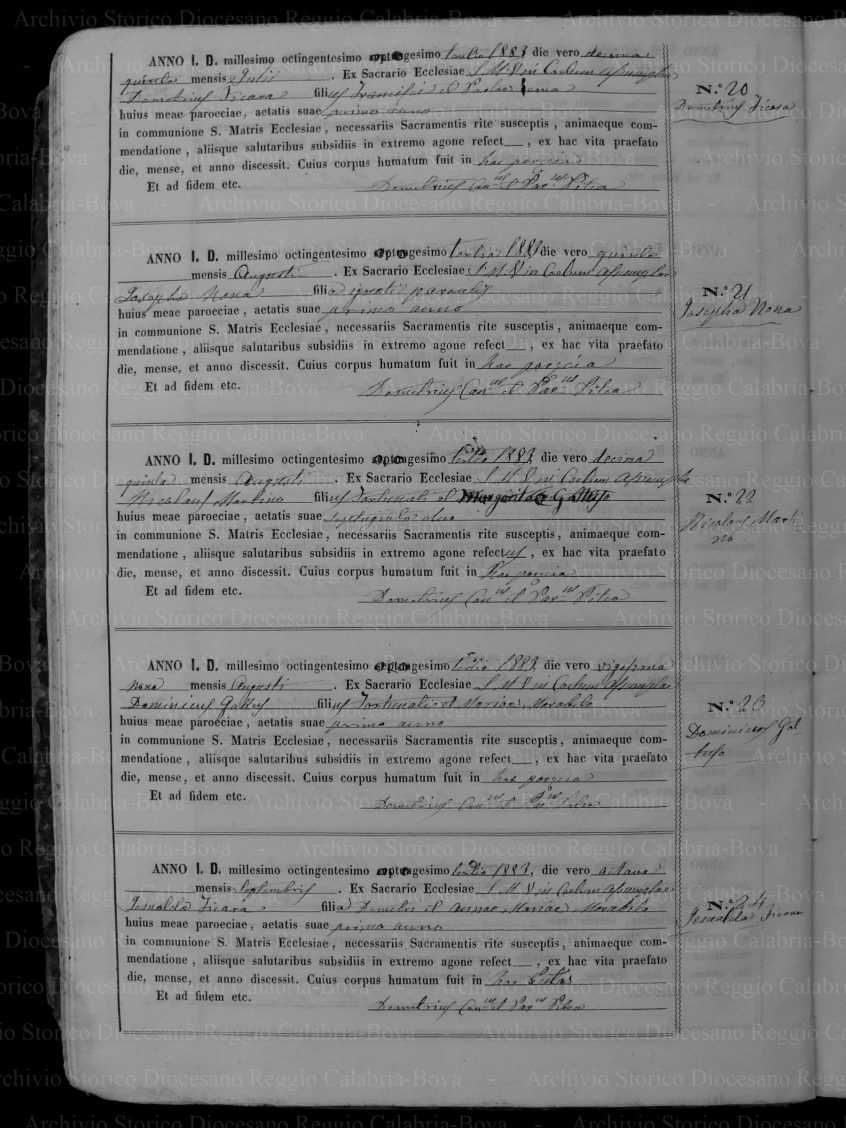 ANNO I. D. millesimo octingentesimo optogesimo tertio 1883 die vero decima
quinta mensis Julii . Ex Sacrario Ecclesiae S. M. V. in Coelum Assumptae
Demetrius Ficara filius Francisci et
huius meae paroeciae, aetatis suae primo anno
in communione S. Matris Ecclesiae, necessariis Sacramentis rite susceptis, animaeque com-
mendatione, aliisque salutaribus subsidiis in extremo agone refect__, ex hac vita praefato
die, mense, et anno discessit. Cuius corpus humatum fuit in hac paroecia
Et ad fidem etc. Demetrius Can.us et Par.us
N.º 20
Demetrius Ficara
ANNO I. D. millesimo octingentesimo optogesimo tertio 1883 die vero quinta
mensis Augusti . Ex Sacrario Ecclesiae S. M. V. in Coelum Assumptae
Josepha Nona filia ignoti parentis
huius meae paroeciae, aetatis suae primo anno
in communione S. Matris Ecclesiae, necessariis Sacramentis rite susceptis, animaeque com-
mendatione, aliisque salutaribus subsidiis in extremo agone refect__, ex hac vita praefato
die, mense, et anno discessit. Cuius corpus humatum fuit in hac paroecia
Et ad fidem etc. Demetrius Can.us et Par.us
N.º 21
Josepha Nona
ANNO I. D. millesimo octingentesimo optogesimo tertio 1883 die vero decima
quinta mensis Augusti . Ex Sacrario Ecclesiae S. M. V. in Coelum Assumptae
Nicolaus Martino filius Fortunati et Margaritae Gattuso
huius meae paroeciae, aetatis suae
in communione S. Matris Ecclesiae, necessariis Sacramentis rite susceptis, animaeque com-
mendatione, aliisque salutaribus subsidiis in extremo agone refectus, ex hac vita praefato
die, mense, et anno discessit. Cuius corpus humatum fuit in hac paroecia
Et ad fidem etc. Demetrius Can.us et Par.us
N.º 22
Nicolaus Marti
no
ANNO I. D. millesimo octingentesimo optogesimo tertio 1883 die vero vigesima
nona mensis Augusti . Ex Sacrario Ecclesiae S. M. V. in Coelum Assumptae
Dominicus filius Fortunati et Mariae Morabito
huius meae paroeciae, aetatis suae primo anno
in communione S. Matris Ecclesiae, necessariis Sacramentis rite susceptis, animaeque com-
mendatione, aliisque salutaribus subsidiis in extremo agone refect__, ex hac vita praefato
die, mense, et anno discessit. Cuius corpus humatum fuit in hac paroecia
Et ad fidem etc. Demetrius Can.us et Par.us
N.º 23
Dominicus Gat
tuso
ANNO I. D. millesimo octingentesimo optogesimo tertio 1883, die vero octava
mensis Septembris . Ex Sacrario Ecclesiae S. M. V. in Coelum Assumptae
Jesualda Ficara filia Demetri et Annae Mariae Morabito
huius meae paroeciae, aetatis suae primo anno
in communione S. Matris Ecclesiae, necessariis Sacramentis rite susceptis, animaeque com-
mendatione, aliisque salutaribus subsidiis in extremo agone refect__, ex hac vita praefato
die, mense, et anno discessit. Cuius corpus humatum fuit in hac
Et ad fidem etc. Demetrius Can.us et Par.us
N.º 24
Jesualda Ficara
Archivio Storico Diocesano Reggio Calabria-Bova